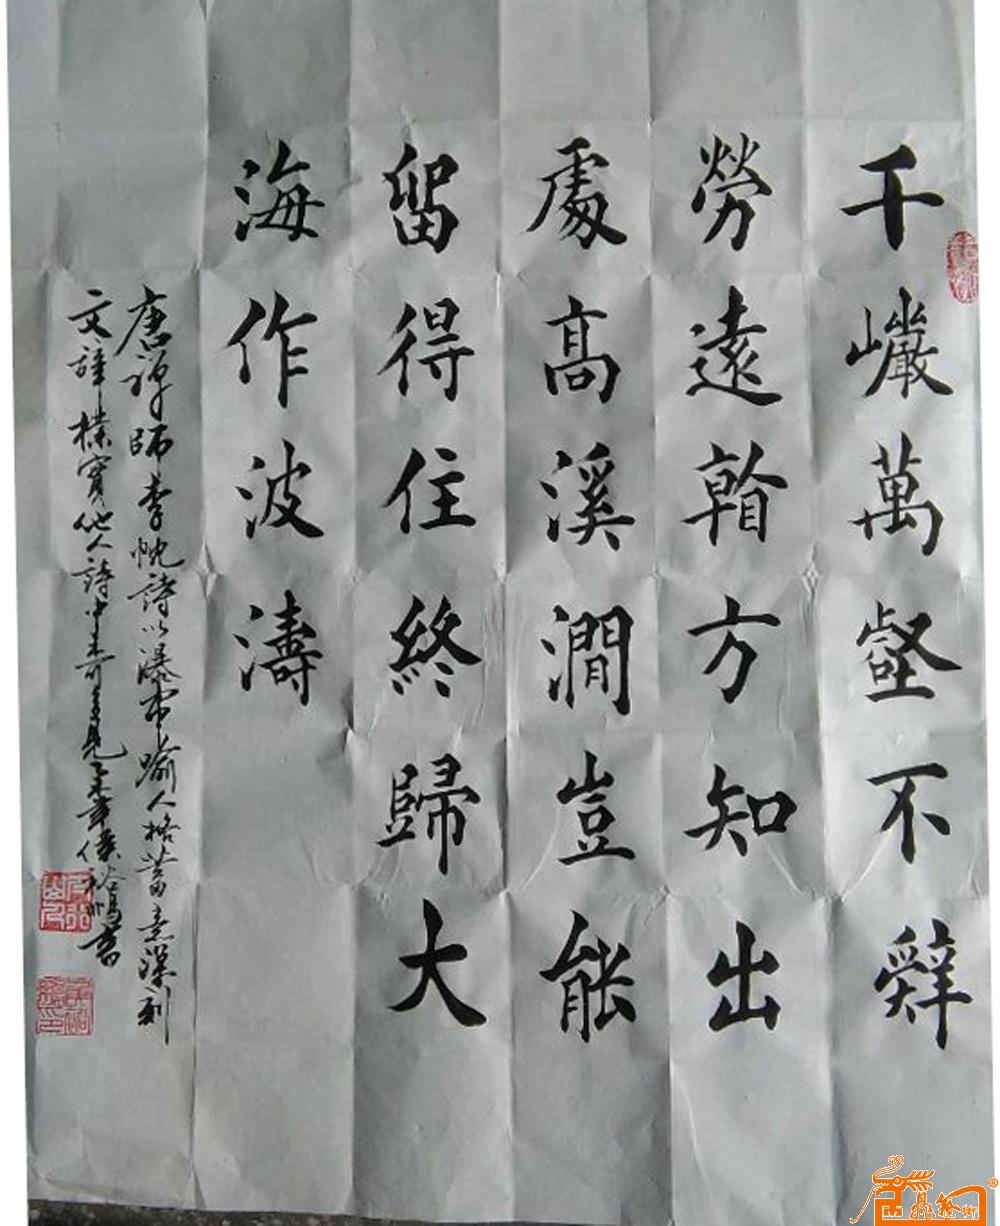 千巗萬壑不辤
勞遠㫪方知出
處高溪澗豈能
留得住終歸大
海作波濤
唐禪師李忱詩以瀑布喻人格蓄意深刻
文辞樸實他人詩中未可多見